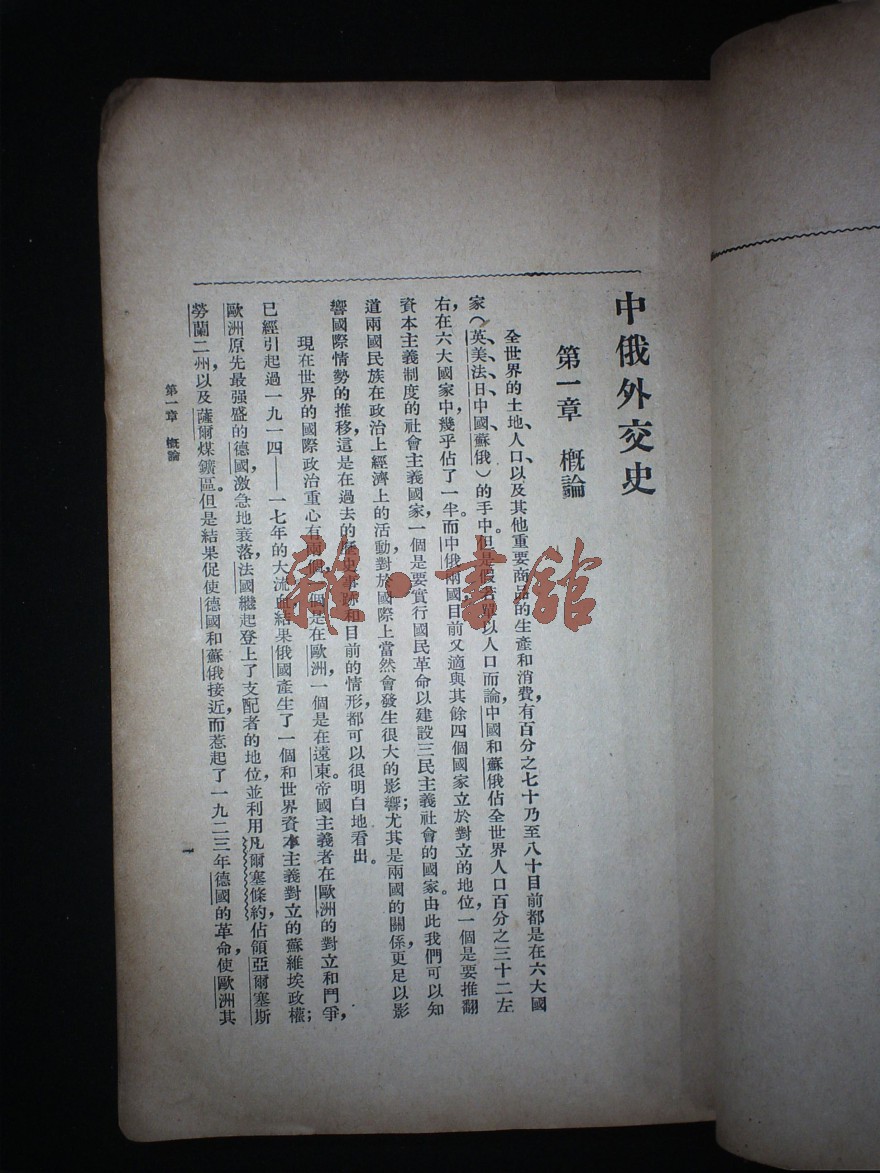 中俄外交史
第一章 概論
全世界的土地、人口、以及其他重要商品的生產和消費，有百分之七十乃至八十目前都是在六大國
家（英、美、法、日、中國、蘇俄）的手中。但是假若單以人口而論，中國和蘇俄佔全世界人口百分之三十二左
右，在六大國家中幾乎佔了一半。而中俄兩國目前又適與其餘四個國家立於對立的地位，一個是要推翻
資本主義制度的社會主義國家，一個是要實行國民革命以建設三民主義社會的國家。由此我們可以知
道兩國民族在政治上經濟上的活動，對於國際上當然會發生很大的影響；尤其是兩國的關係更足以影
響國際情勢的推移，這是在過去的歷史事跡和目前的情形，都可以很明白地看出。
現在世界的國際政治重心有兩個，一個是在歐洲，一個是在遠東。帝國主義者在歐洲的對立和鬥爭，
已經引起過一九一四——一七年的大流血，結果俄國產生了一個和世界資本主義對立的蘇維埃政權；
歐洲原先最强盛的德國，激急地衰落，法國繼起登上了支配者的地位，並利用凡爾塞條約佔領亞爾塞斯
勞蘭二州，以及薩爾煤鑛區。但是結果促使德國和蘇俄接近，而惹起了一九二三年德國的革命，使歐洲其
第一章 概論
一
雜·書館